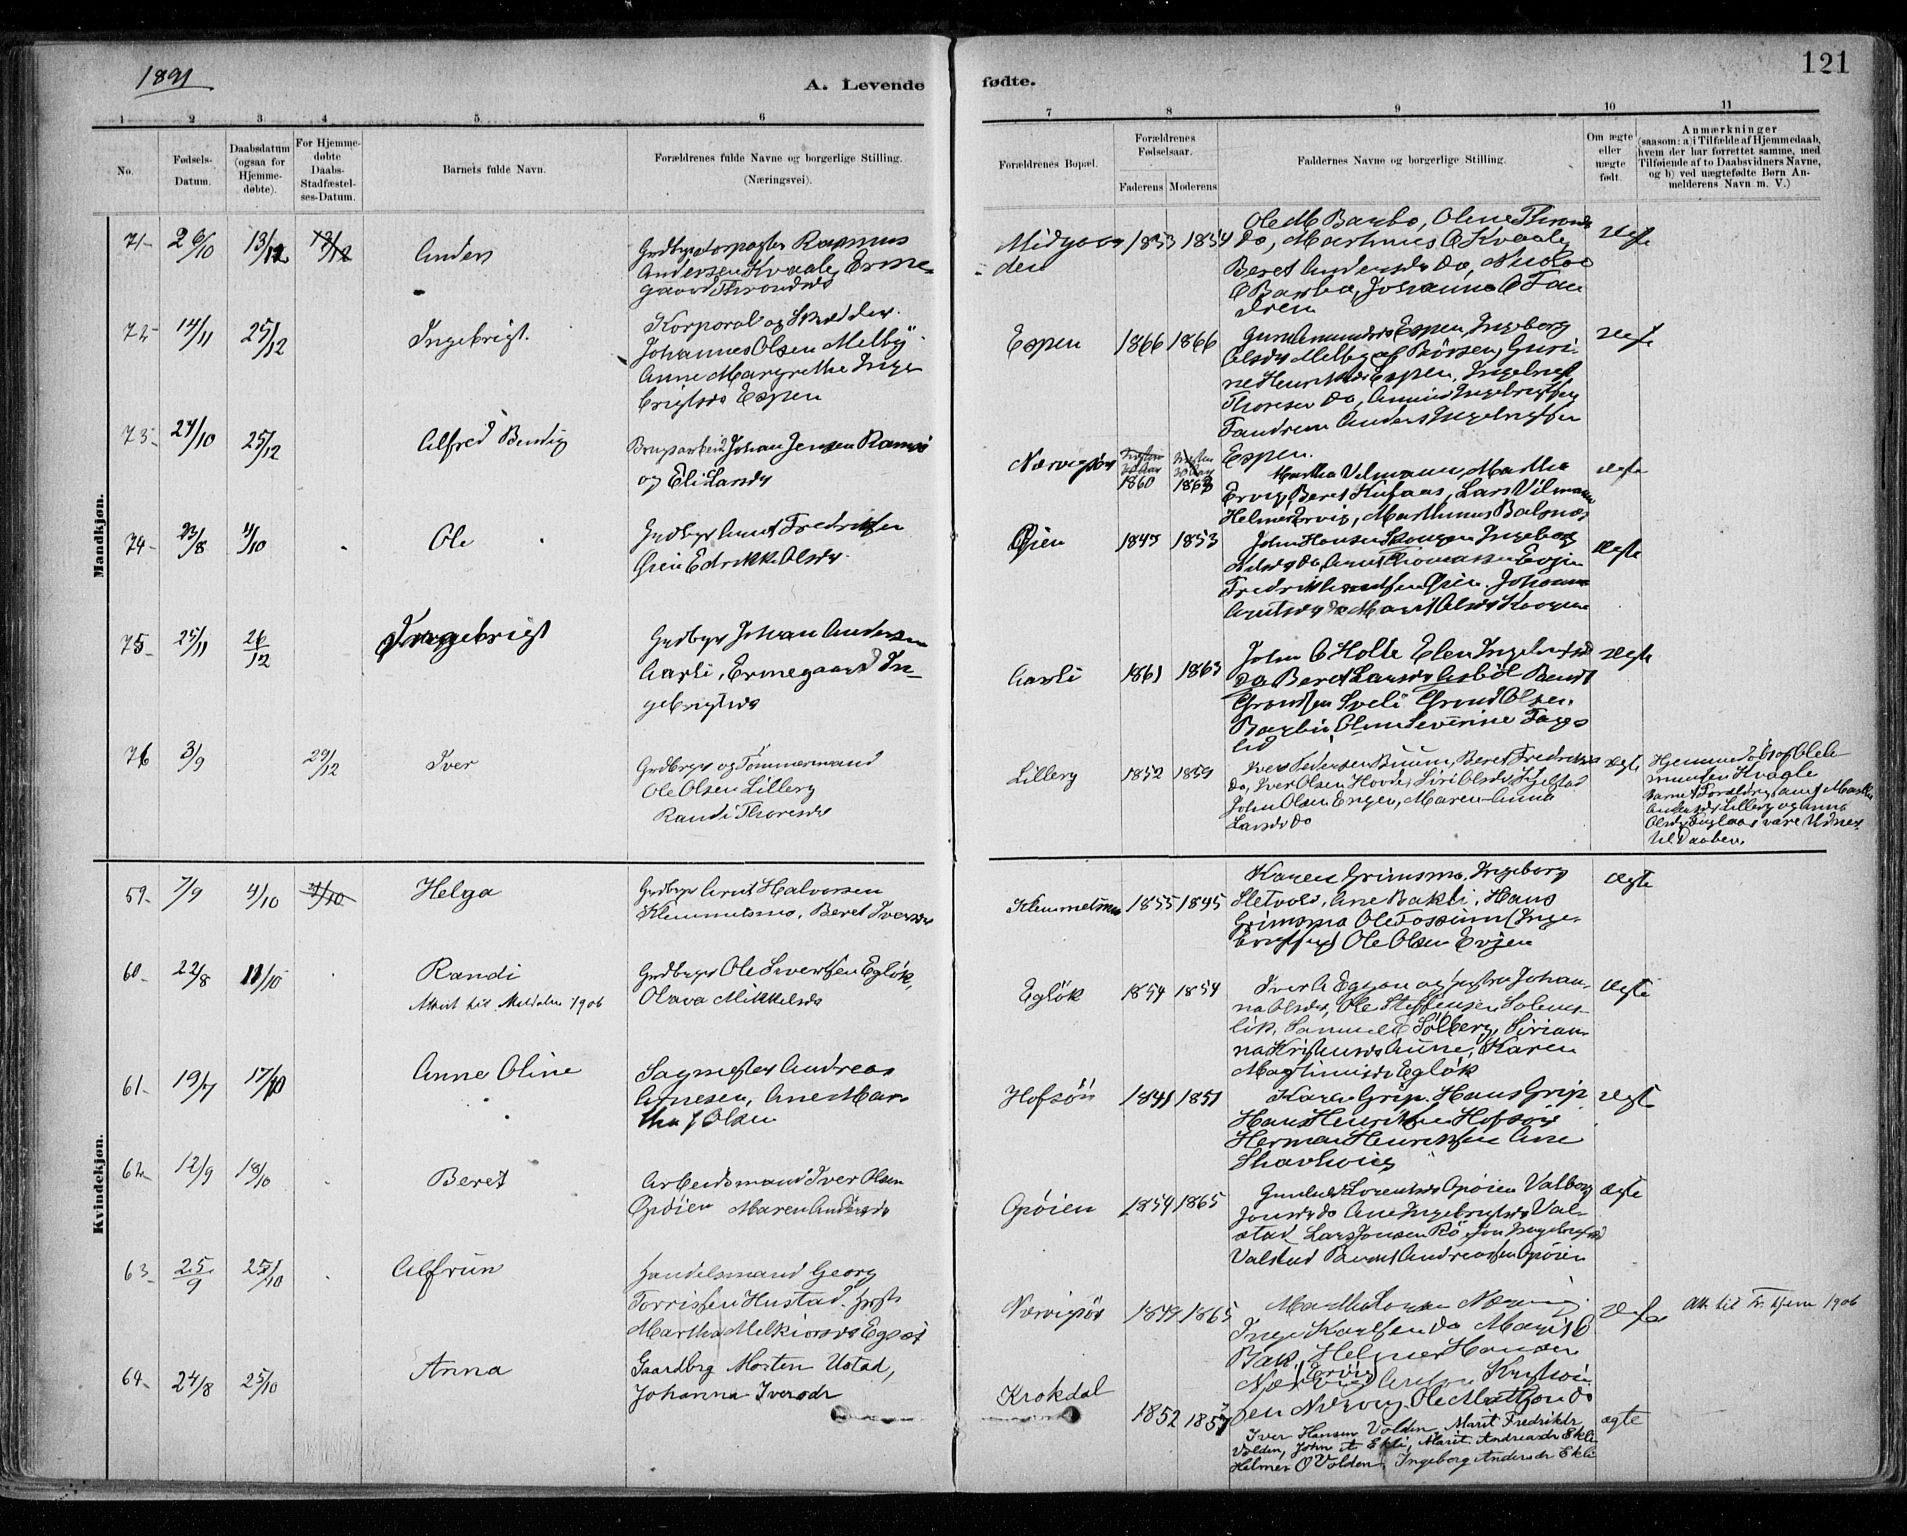 1891
A. Levende
fødte.
121
1 2 3 4 5 6 7 8 9 10 11
No.
Fødsels-
Datum.
Daabsdatum
(ogsaa for
Hjemme-
døbte).
For Hjemme-
døbte
Daabs-
Stadfæstel-
ses-Datum.
Barnets fulde Navn.
Forældrenes fulde Navne og borgerlige Stilling.
(Næringsvei).
Forældrenes Bopæl.
Forældrenes
Fødselsaar.
Faderens Moderens
Faddernes Navne og borgerlige Stilling.
Om ægte
eller
uægte
født.
Anmærkninger
(saasom: a) i Tilfælde af Hjemmedaab,
hvem der har forrettet samme, med
Tilføiende af to Daabsvidners Navne,
og b) ved uægtefødte Børn An-
melderens Navn m. V.)
Mandkjøn.
71- 26/10 13/12 13/12 Anders
Rasmus
Andersen Kvaale, Erme-
gaard Throndsd
Midgaar
den
1853 1854
Ole M Barbo, Oline Thronds
do, Marthinus O Kvaale
Beret Andersd do, Nicolai
O Barbo, Johanna O Fan
drem
ægte
72- 14/11 25/12 Ingebrigt.
Korporal og Skrædder
Johannes Olsen Melby
Anne Margrethe Inge
brigtsd Espen
Espen 1866 1866
Espen, Ingeborg
Olsdr Melby af Børsen, Guri-
ne Henriksd Espen, Ingebrigt
Thoresen do,
Fandrem Anders Ingebrigtsen
Espen.
ægte
73- 27/10 25/12 Alfred Bendig
Brugsarbeid Johan Jensen
og Eli Larsdr
Nærvigsør
1860 1863
Martha Vilmann, Martha
Ervig, Beret Hufaas, Lars Vilmann
Helmer Ervig, Marthinus Balsnæs
ægte
74- 23/8 11/10 Ole
Grdbgr Arnt Fredriksen
Øien Edrikke Olsdr
Øien 1845 1853
John Hansen Skougen Ingeborg
Nilsdr do, Arnt Thomassen Evjen
Fredrik Arntsen Øien. Johanna
Arntsdr do Marit Olsdr Skougen
ægte
75- 25/11 26/12 Ingebrigt
Grdbgr Johan Andersen
Aarli, Ermegaard In-
gebrigtsd
Aarli 1861 1863
John O Holte Elen Ingebrigtsd
do Beret Larsdr Asbøl Bendt
Grondsen Sveli Grond Olsen
Barbu, Oline Severine Fags
lid
ægte
76 3/9 29/12 Iver
Grdbgr og Tømmermand
Ole Olsen Lilleng
Randi Thoresdr
Lilleng 1852 1859
Iver Pedersen Buum, Beret Fredriksd
do, Iver Olsen Hoode, Siri Olsdr Gjelstad
John Olsen Engen, Maren Anna
Larsdr do
ægte
Hjemmedøbt af Ole
Kvaale
Barnets Forældre, samt Martha
Andersdr Lilleng og Anna
Olsdr Fuglaas vare Vidner
til Daaben.
Kvindekjøn.
59. 7/9 4/10 4/10 Helga
Grdbgr Arnt Halvorsen
Klemmetsmo, Beret Iversdr
Klemmetsmo 1855 1845
Karen Grimsmo, Ingeborg
Sletvold, Ane Bakli, Hans
Grimsmo Ole Fossum (Inge-
brigtsen) Ole Olsen Evjen
ægte
60- 22/8 11/10 Randi
Attest til Meldalen 1906
Grdbgr Ole Sivertsen Egløk,
Olava Mikkelsdr
Egløk 1854 1854
Iver A Eggan og hustru Johan-
na Olsdr, Ole Steffensen Solems-
lik, Samuel E Solberg, Sirian-
na Kristensd Aune, Karen
Martinusdr Egløk
ægte
61- 19/7 17/10 Anne Oline
Sagmester Andreas
Arnesen, Ane Mar-
tha J Olsen
Hofsøn 1841 1851
Karen Grip, Hans Grip
Hans Henriksen Hofsøn
Herman Henriksen Ane
ægte
62- 12/9 18/10 Beret
Arbeidsmand Iver Olsen
Opøien Maren Andersdr
Opøien 1854 1865
Gunhild Lorentsdr Opøien Valborg
Jonsdr do Ane Ingebrigtsdr Val-
stad Lars Jonsen Rø Jon Ingebrigtsen
Valstad Bernt Andreassen Opøien
ægte
63- 25/9 25/10 Alfrun
Handelsmand Georg
Torrissen Hustad
Martha Melkiorsdr
Nærvigsør 1849 1865
Inge Karlsen do Marit O
Bak, Helmer Hansen
Nærvig (Ervig)
ægte
Att. til Tr.hjem 1906
64- 24/8 25/10 Anna
Gaardbrg Morten Ustad,
Johanna Iversdr
Krokdal
1852 1857
Iver Hansen Volden Marit Fredrikdr
Volden, John A Ekli, Marit Andreasdr Ekli
Helmer O Volden, Ingeborg Andersdr Ekli
ægte